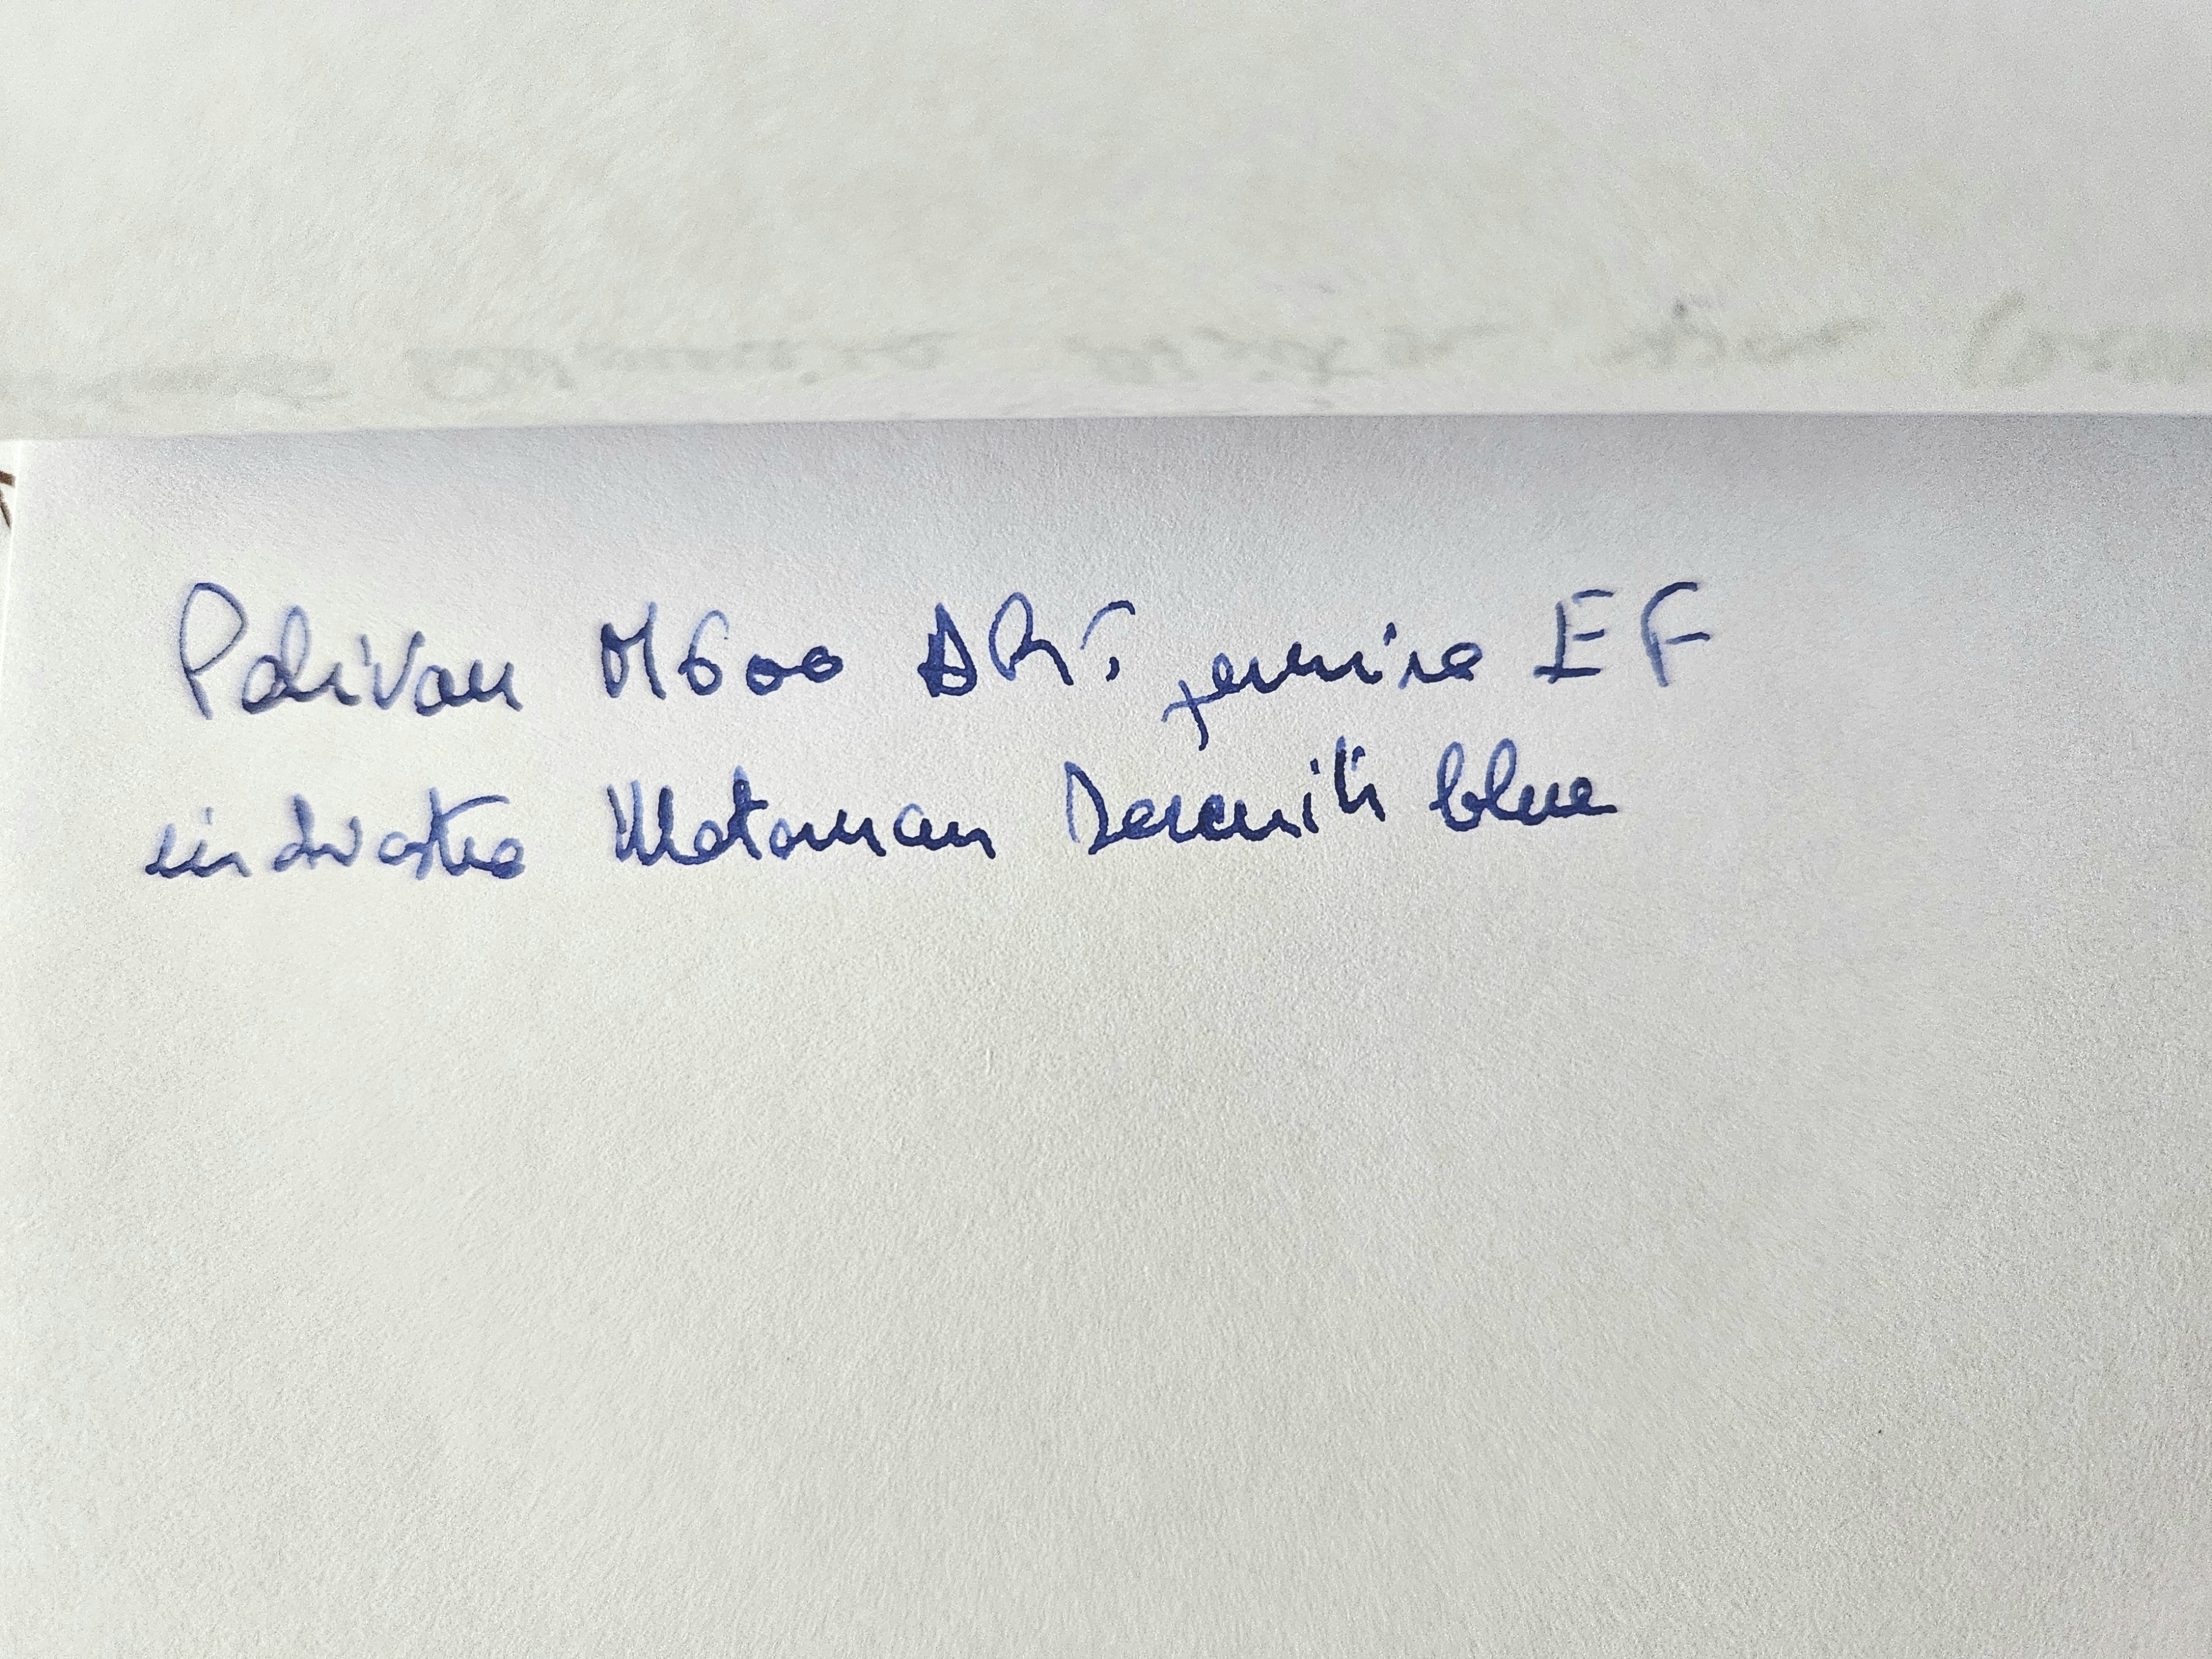 Pelikan M600 ART. pennino EF
inchiostro Waterman Serenity blue